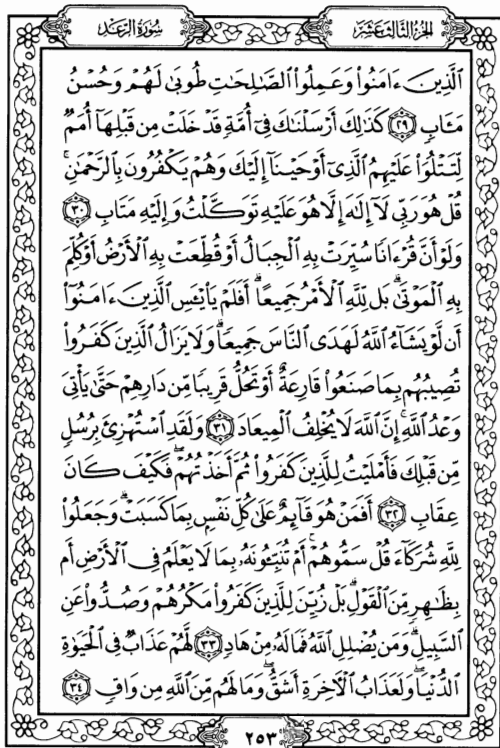 الجزء الثالث عشر
سورة الرعد
الَّذِينَ ءَامَنُوا۟ وَعَمِلُوا۟ الصَّـٰلِحَـٰتِ طُوبَىٰ لَهُمْ وَحُسْنُ
مَـَٔابٍ ۝٢٩ كَذَٰلِكَ أَرْسَلْنَـٰكَ فِىٓ أُمَّةٍ قَدْ خَلَتْ مِن قَبْلِهَآ أُمَمٌ
لِّتَتْلُوَا۟ عَلَيْهِمُ الَّذِىٓ أَوْحَيْنَآ إِلَيْكَ وَهُمْ يَكْفُرُونَ بِالرَّحْمَـٰنِ ۚ
قُلْ هُوَ رَبِّى لَآ إِلَـٰهَ إِلَّا هُوَ عَلَيْهِ تَوَكَّلْتُ وَإِلَيْهِ مَتَابِ ۝٣٠
وَلَوْ أَنَّ قُرْءَانًا سُيِّرَتْ بِهِ الْجِبَالُ أَوْ قُطِّعَتْ بِهِ الْأَرْضُ أَوْ كُلِّمَ
بِهِ الْمَوْتَىٰ ۗ بَل لِّلَّهِ الْأَمْرُ جَمِيعًا ۗ أَفَلَمْ يَا۟يْـَٔسِ الَّذِينَ ءَامَنُوٓا۟
أَن لَّوْ يَشَآءُ اللَّهُ لَهَدَى النَّاسَ جَمِيعًا ۗ وَلَا يَزَالُ الَّذِينَ كَفَرُوا۟
تُصِيبُهُم بِمَا صَنَعُوا۟ قَارِعَةٌ أَوْ تَحُلُّ قَرِيبًا مِّن دَارِهِمْ حَتَّىٰ يَأْتِىَ
وَعْدُ اللَّهِ ۚ إِنَّ اللَّهَ لَا يُخْلِفُ الْمِيعَادَ ۝٣١ وَلَقَدِ اسْتُهْزِئَ بِرُسُلٍ
مِّن قَبْلِكَ فَأَمْلَيْتُ لِلَّذِينَ كَفَرُوا۟ ثُمَّ أَخَذْتُهُمْ ۖ فَكَيْفَ كَانَ
عِقَابِ ۝٣٢ أَفَمَنْ هُوَ قَآئِمٌ عَلَىٰ كُلِّ نَفْسٍۭ بِمَا كَسَبَتْ ۗ وَجَعَلُوا۟
لِلَّهِ شُرَكَآءَ قُلْ سَمُّوهُمْ ۚ أَمْ تُنَبِّـُٔونَهُۥ بِمَا لَا يَعْلَمُ فِى الْأَرْضِ أَم
بِظَـٰهِرٍ مِّنَ الْقَوْلِ ۗ بَلْ زُيِّنَ لِلَّذِينَ كَفَرُوا۟ مَكْرُهُمْ وَصُدُّوا۟ عَنِ
السَّبِيلِ ۗ وَمَن يُضْلِلِ اللَّهُ فَمَا لَهُۥ مِنْ هَادٍ ۝٣٣ لَّهُمْ عَذَابٌ فِى الْحَيَوٰةِ
الدُّنْيَا ۖ وَلَعَذَابُ الْـَٔاخِرَةِ أَشَقُّ ۖ وَمَا لَهُم مِّنَ اللَّهِ مِن وَاقٍ ۝٣٤
٢٥٣